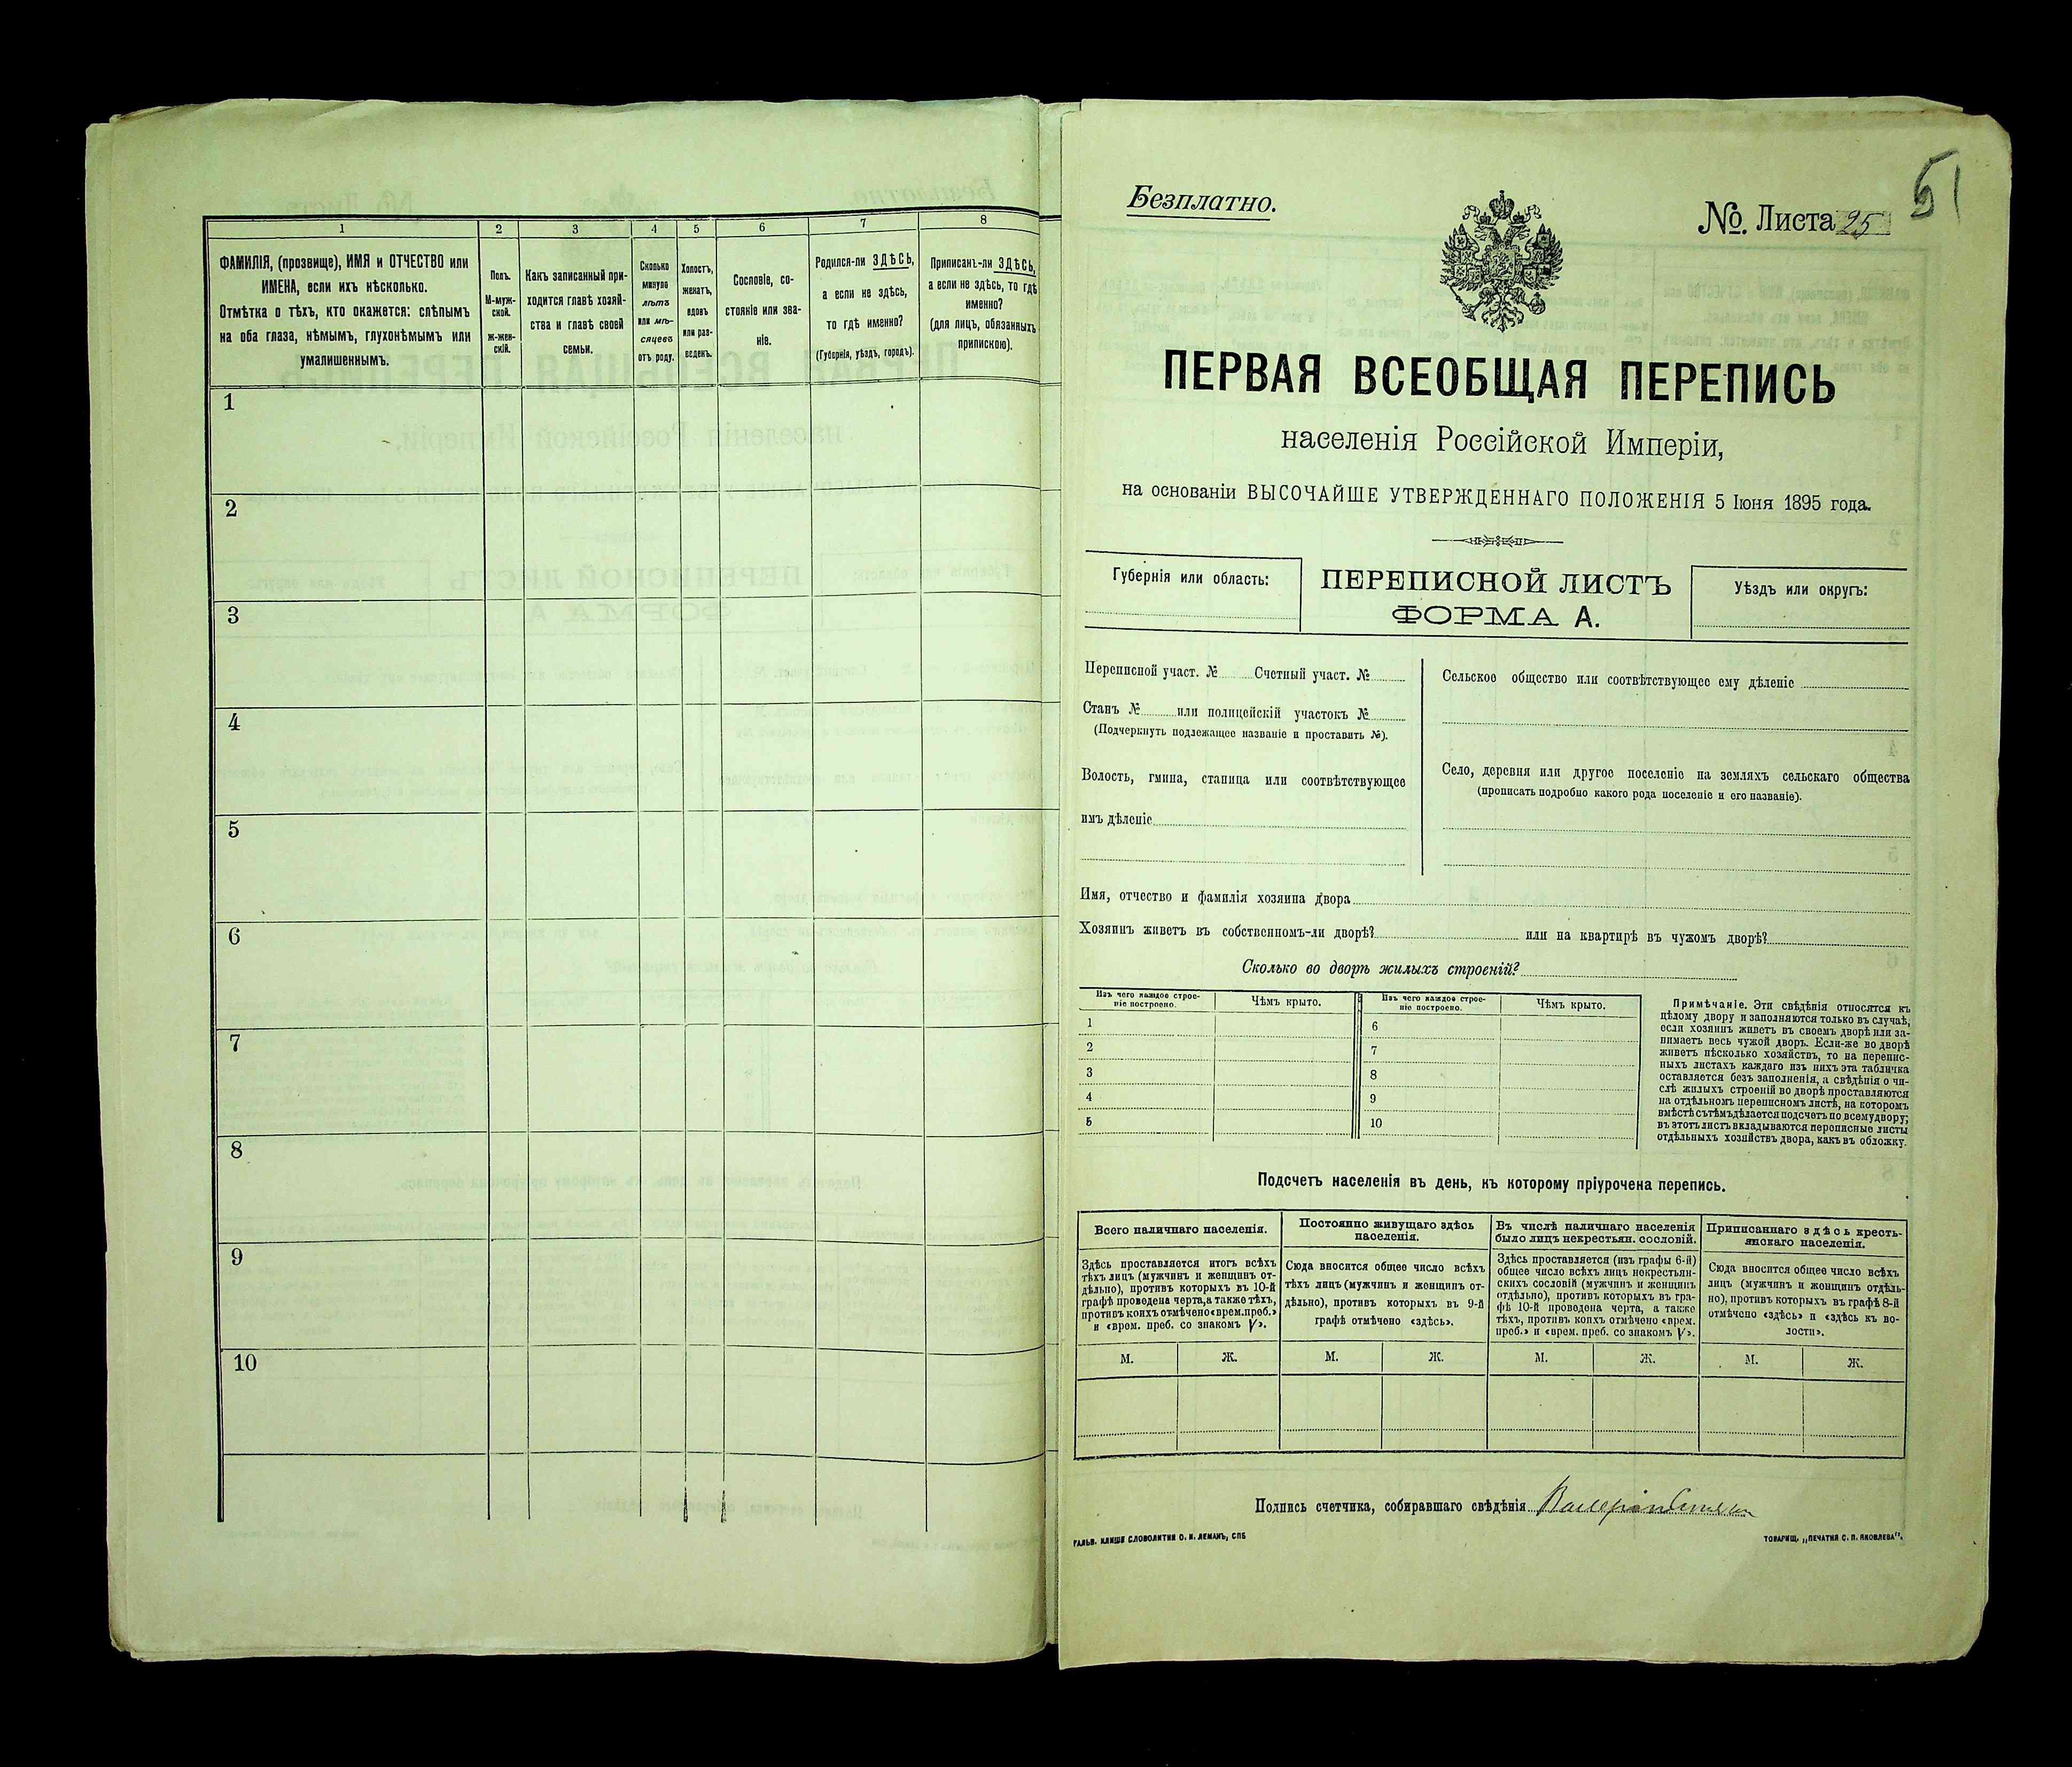 1
2
3
4
5
6
7
8
ФАМИЛІЯ, (прозвище), ИМЯ и ОТЧЕСТВО или
ИМЕНА, если ихъ нѣсколько.
Отмѣтка о тѣхъ, кто окажется: слѣпымъ
на оба глаза, нѣмымъ, глухонѣмымъ или
умалишеннымъ.
Полъ.
М-муж-
ской.
ж-жен-
скій.
Какъ записанный при-
ходится главѣ хозяй-
ства и главѣ своей
семьи.
Сколько
минуло
лѣтъ
или мѣ-
сяцевъ
отъ роду.
Холостъ,
женатъ,
вдовъ
или раз-
веденъ.
Сословіе, со-
стояніе или зва-
ніе.
Родился-ли ЗДѢСЬ,
а если не здѣсь,
то гдѣ именно?
(Губернія, уѣздъ, городъ).
Приписанъ-ли ЗДѢСЬ,
а если не здѣсь, то гдѣ
именно?
(для лицъ, обязанныхъ
припискою).
1
2
3
4
5
6
7
8
9
10
51
Безплатно.
№. Листа 25
ПЕРВАЯ ВСЕОБЩАЯ ПЕРЕПИСЬ
населенія Россійской Имперіи,
на основаніи ВЫСОЧАЙШЕ УТВЕРЖДЕННАГО ПОЛОЖЕНІЯ 5 Іюня 1895 года.
Губернія или область:
ПЕРЕПИСНОЙ ЛИСТЪ
ФОРМА А.
Уѣздъ или округъ:
Переписной участ. № Счетный участ. №
Станъ № или полицейскій участокъ №
(Подчеркнуть подлежащее названіе и проставить №).
Волость, гмина, станица или соотвѣтствующее
имъ дѣленіе
Сельское общество или соотвѣтствующее ему дѣленіе
Село, деревня или другое поселеніе на земляхъ сельскаго общества
(прописать подробно какого рода поселеніе и его названіе).
Имя, отчество и фамилія хозяина двора
Хозяинъ живетъ въ собственномъ-ли дворѣ? или на квартирѣ въ чужомъ дворѣ?
Сколько во дворѣ жилыхъ строеній?
Изъ чего каждое строе-
ніе построено.
Чѣмъ крыто.
Изъ чего каждое строе-
ніе построено.
Чѣмъ крыто.
1
2
3
4
5
6
7
8
9
10
Примѣчаніе. Эти свѣдѣнія относятся къ
цѣлому двору и заполняются только въ случаѣ,
если хозяинъ живетъ въ своемъ дворѣ или за-
нимаетъ весь чужой дворъ. Если-же во дворѣ
живетъ нѣсколько хозяйствъ, то на перепис-
ныхъ листахъ каждаго изъ нихъ эта табличка
оставляется безъ заполненія, а свѣдѣнія о чи-
слѣ жилыхъ строеній во дворѣ проставляются
на отдѣльномъ переписномъ листѣ, на которомъ
вмѣстѣ съ тѣмъ дѣлается подсчетъ по всему двору;
въ этотъ листъ вкладываются переписные листы
отдѣльныхъ хозяйствъ двора, какъ въ обложку.
Подсчетъ населенія въ день, къ которому пріурочена перепись.
Всего наличнаго населенія.
Постоянно живущаго здѣсь
населенія.
Въ числѣ наличнаго населенія
было лицъ некрестьян. сословій.
Приписаннаго здѣсь кресть-
янскаго населенія.
Здѣсь проставляется итогъ всѣхъ
тѣхъ лицъ (мужчинъ и женщинъ от-
дѣльно), противъ которыхъ въ 10-й
графѣ проведена черта, а также тѣхъ,
противъ коихъ отмѣчено «врем. преб.»
и «врем. преб. со знакомъ V».
Сюда вносится общее число всѣхъ
тѣхъ лицъ (мужчинъ и женщинъ от-
дѣльно), противъ которыхъ въ 9-й
графѣ отмѣчено «здѣсь».
Здѣсь проставляется (изъ графы 6-й)
общее число всѣхъ лицъ некрестьян-
скихъ сословій (мужчинъ и женщинъ
отдѣльно), противъ которыхъ въ гра-
фѣ 10-й проведена черта, а также
тѣхъ, противъ коихъ отмѣчено «врем.
преб.» и «врем. преб. со знакомъ V».
Сюда вносится общее число всѣхъ
лицъ (мужчинъ и женщинъ отдѣль-
но), противъ которыхъ въ графѣ 8-й
отмѣчено «здѣсь» и «здѣсь къ во-
лости».
М. Ж. М. Ж. М. Ж. М. Ж.
Подпись счетчика, собиравшаго свѣдѣнія
ГАЛЬВ. КЛИШЕ СЛОВОЛИТНИ О. И. ЛЕМАНЪ, СПБ
ТОВАРИЩ. „ПЕЧАТНЯ С. П. ЯКОВЛЕВА".